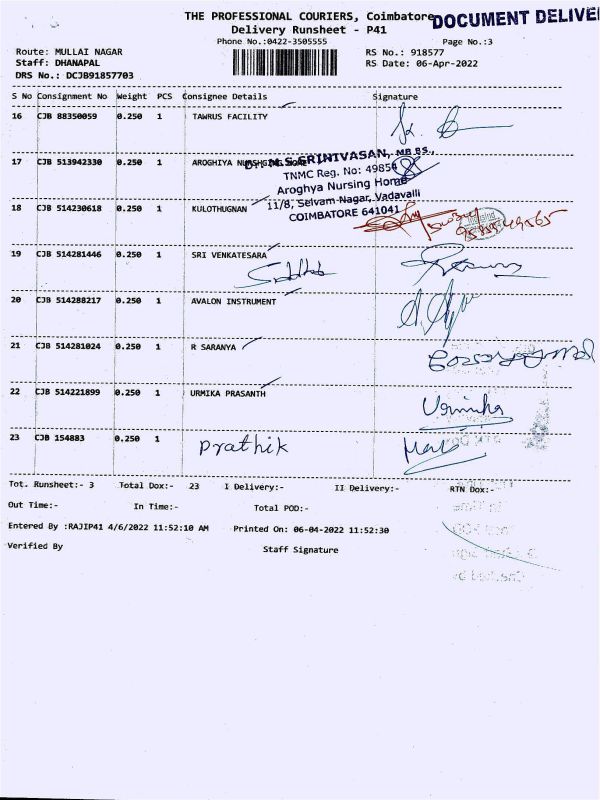 THE PROFESSIONAL COURIERS, Coimbatore
DOCUMENT DELIVE
Delivery Runsheet - P41
Phone No.:0422-3505555
Page No.:3
Route: MULLAI NAGAR
RS No.: 918577
Staff: DHANAPAL
RS Date: 06-Apr-2022
DRS No.: DCJB91857703
S No Consignment No Weight PCS Consignee Details Signature
16 CJB 88350059 0.250 1 TAWRUS FACILITY
17 CJB 513942330 0.250 1 AROGHIYA
Dr. M.S.SRINIVASAN, MB.BS.,
TNMC Reg. No: 49854
Aroghya Nursing Home
11/8, Selvam Nagar, Vadavalli
COIMBATORE 641041
18 CJB 514230618 0.250 1 KULOTHUGNAN
19 CJB 514281446 0.250 1 SRI VENKATESARA
20 CJB 514288217 0.250 1 AVALON INSTRUMENT
21 CJB 514281024 0.250 1 R SARANYA
22 CJB 514221899 0.250 1 URMIKA PRASANTH
Urmika
23 CJB 154883 0.250 1 Prathik
Tot. Runsheet:- 3 Total Dox:- 23 I Delivery:- II Delivery:- RTN Dox:-
Out Time:- In Time:- Total POD:-
Entered By :RAJIP41 4/6/2022 11:52:10 AM Printed On: 06-04-2022 11:52:30
Verified By Staff Signature